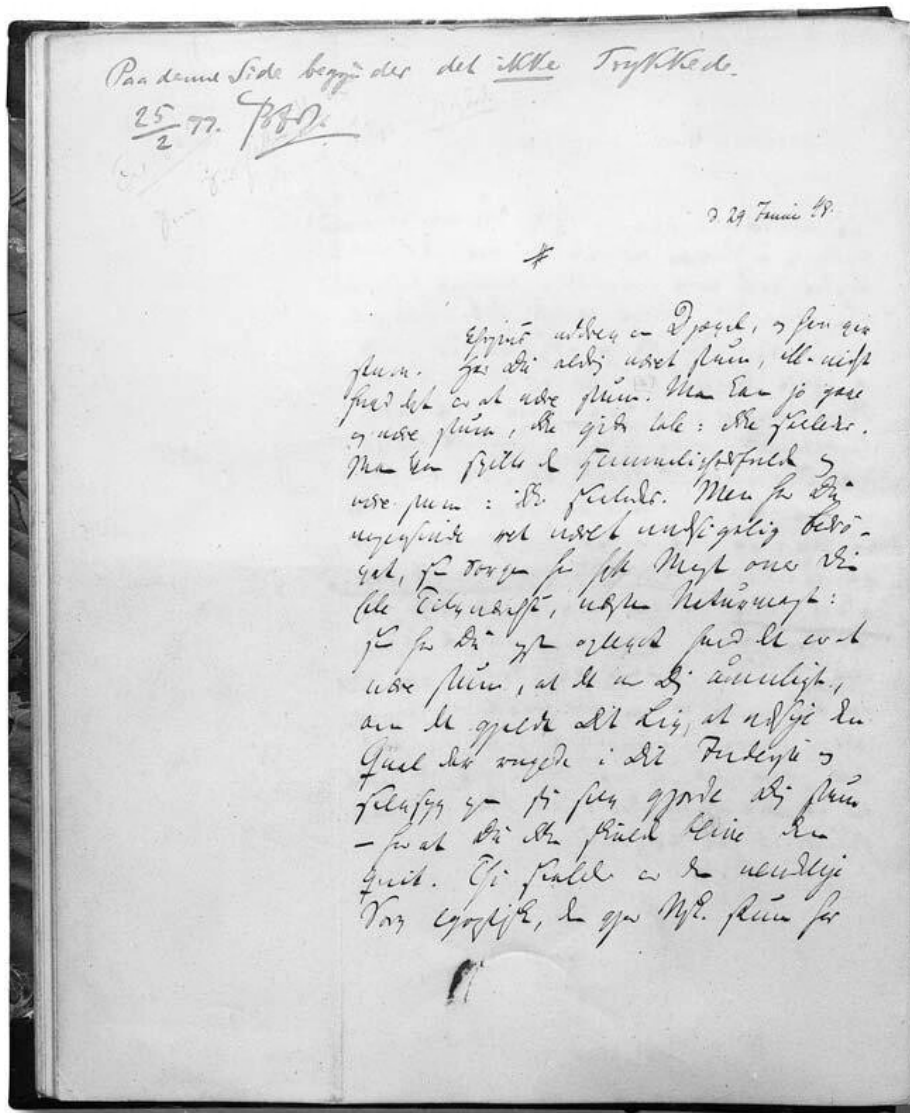 Paa denne Side begynder det ikke Trykkede.
25/2 77.
d. 29 Junii 48.
uddrev en Djævel, og han var
stum. Har Du aldrig været stum,
hvad det er at være stum. Man kan jo gaae
og være stum, ikke gide tale:
Man kan spille den hemmelighedsfulde og
være stum: Men har Du
nogensinde ret været uudsigelig bedrø-
vet, saa Sorgen har faaet Magt over Din
hele Tilværelse, næsten Naturmagt:
saa har Du ogsaa oplevet hvad det er at
være stum, at det var Dig umuligt,
om det gjældte Dit Liv, at udsige den
Qval der ragede i Dit Inderste og
selvsyg gjorde Dig stum
– for at Du ikke skulde blive den
qvit. Thi er den
Sorg egoistisk, den gjør Msk. stum for